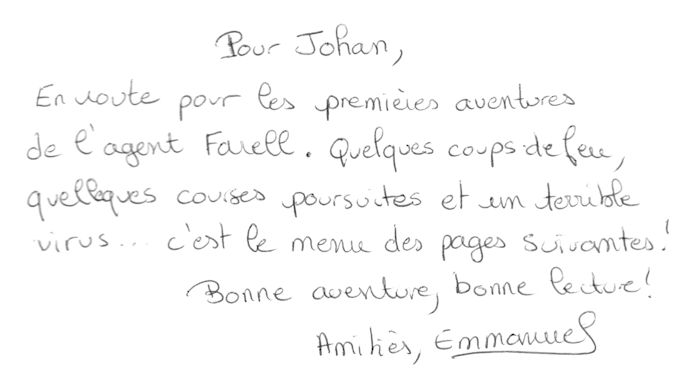 Pour Johan,
En route pour les premières aventures
de l'agent Farell. Quelques coups de feu,
quelleques courses poursuites et un terrible
virus... c'est le menu des pages suivantes!
Bonne aventure, bonne lecture!
Amitiés, Emmanuel